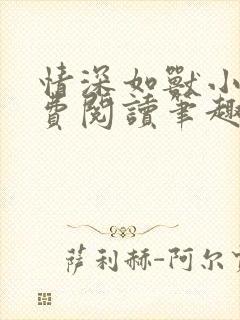 情深如獸小
費閱讀筆趣
萨利赫-阿尔